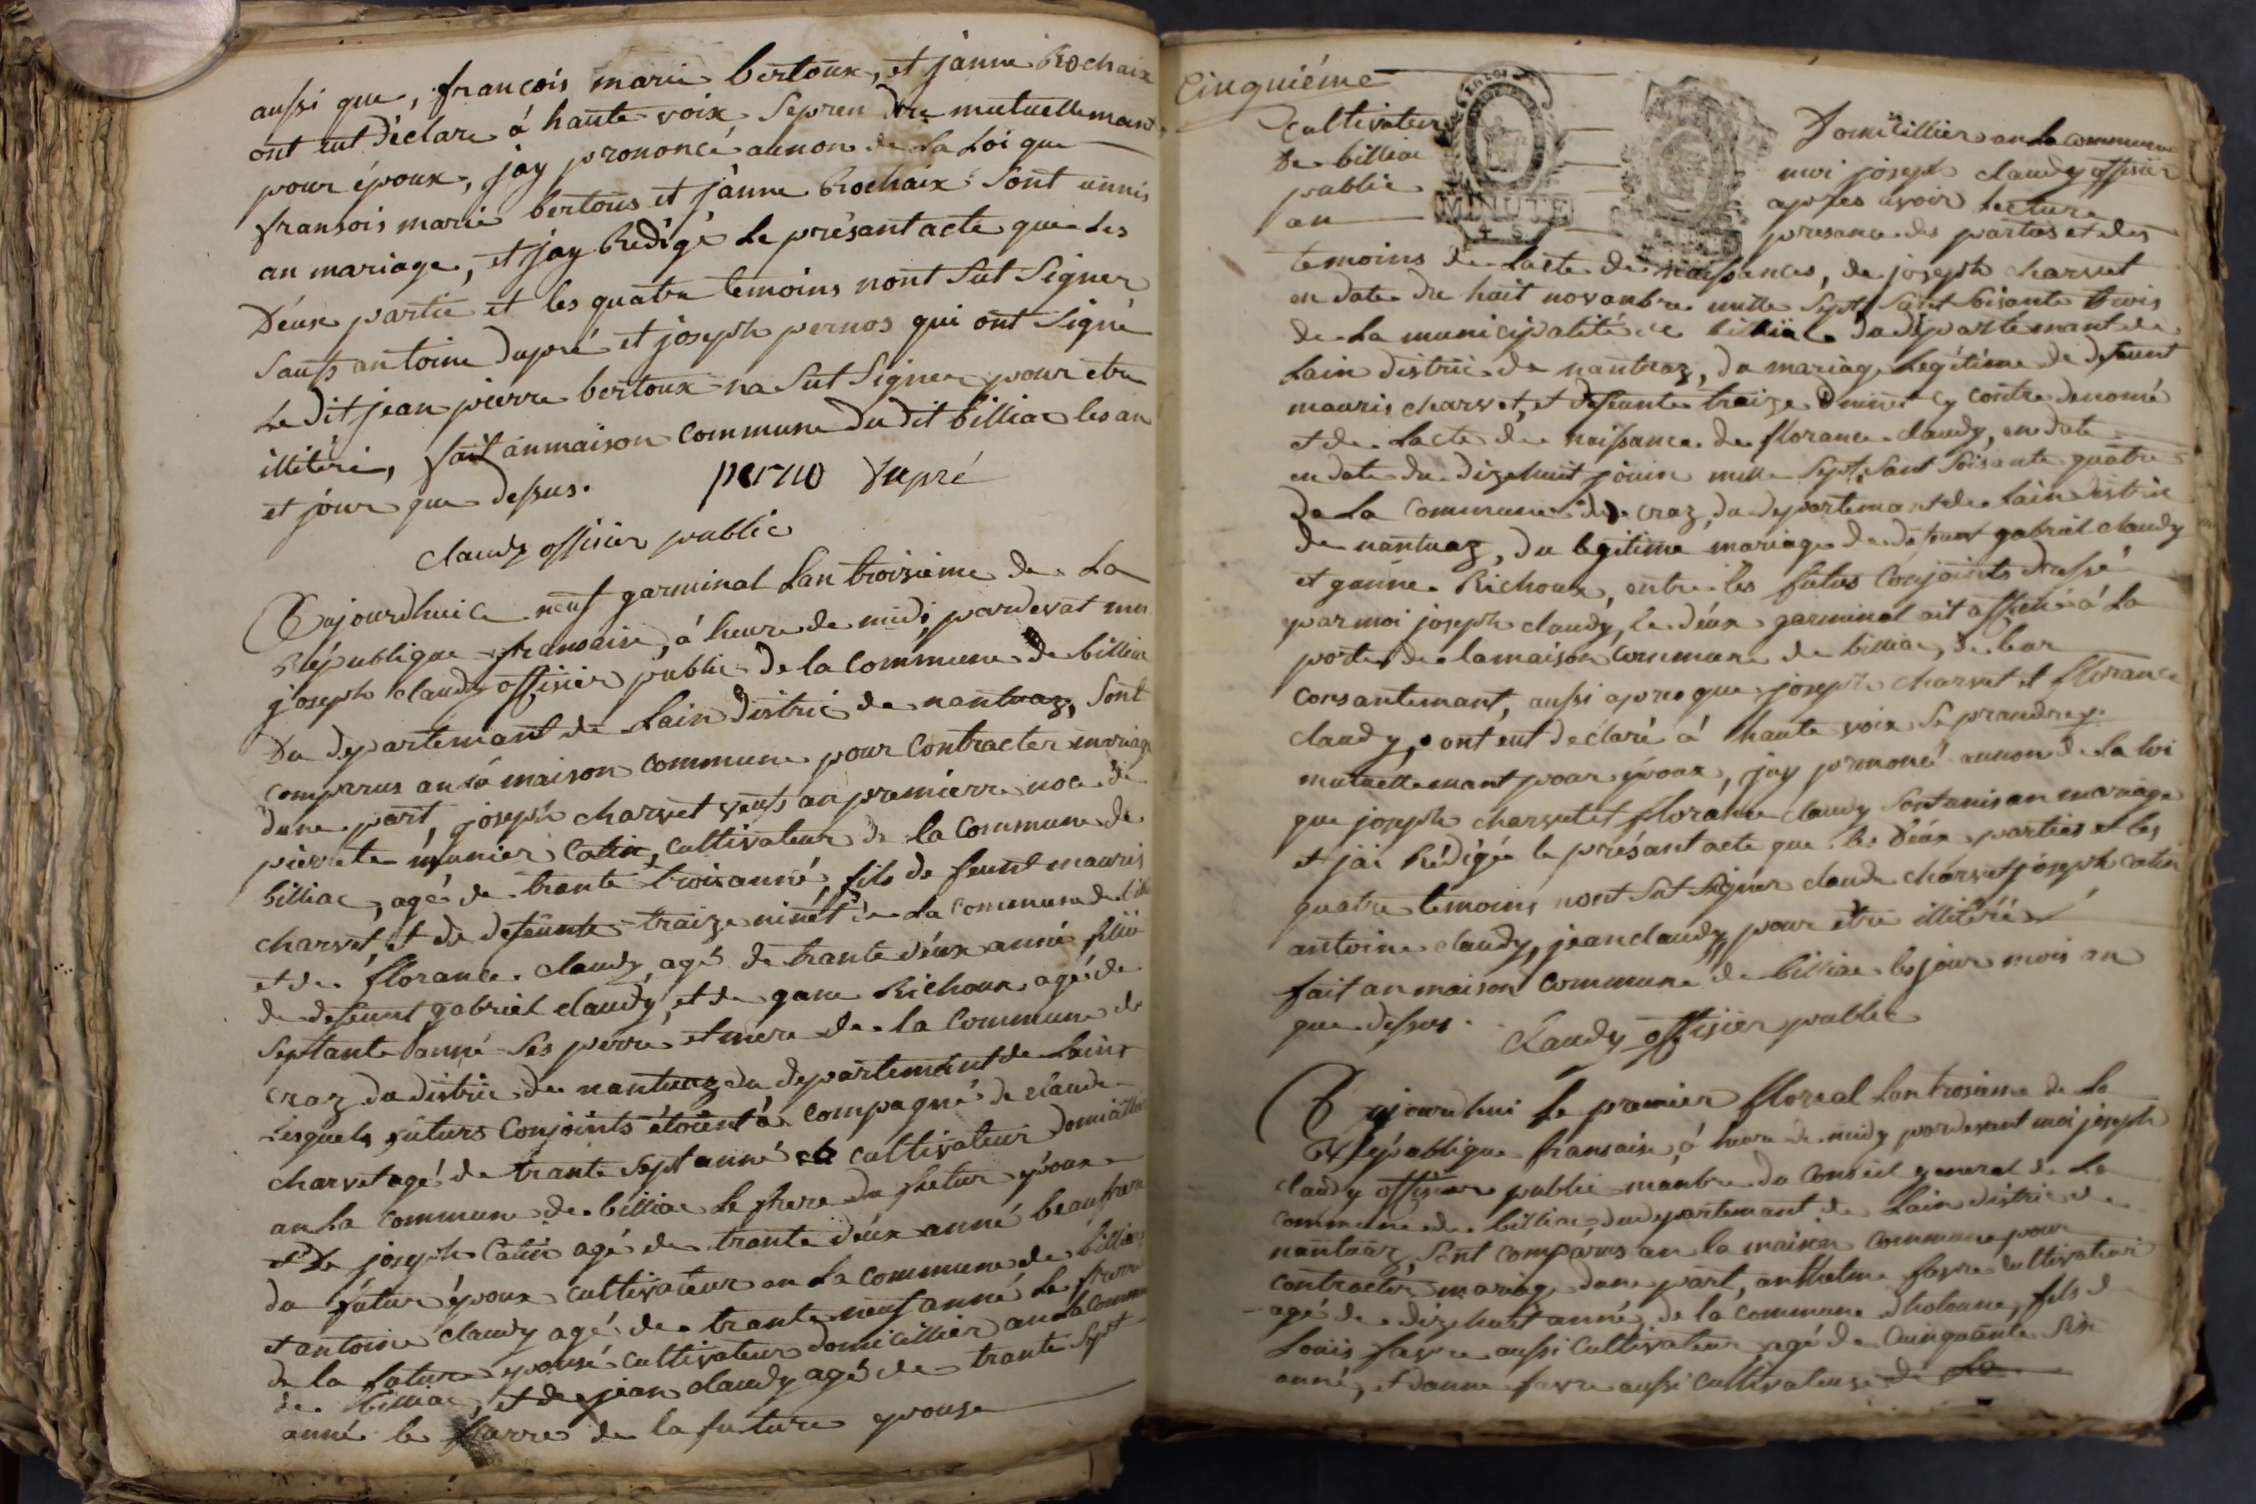 aussi que, françois marie bertoux, et janne Rochaix
ont eut déclare á haute voix Sepren dre mutuellemant
pour époux, jay prononcé aunon de la Loi que
fransois marie bertous et jànne Rochaix Sont unnis
an mariage, et jay Redigé Le présant acte que Les
Déux partie et les quatre temoins nont Sut Signer
Sauf antoine dupré et joseph pernos qui ont Signé
Le dit jean pierre bertoux na Sut Signer pour etre
illitéré, fait anmaison commune du dit billiac les an
et jour que dessus. perno Dupré
claudy offisier public
Aujourdhui le neuf garminal Lan troisieme de La
République fransaise, á heure de midi pardevat moi
joseph claudy offisier public de la commune de billiac
Du departemant de Lain distric de nantuaz, Sont
comparus an la maison commune pour contracter mariage
dune part, joseph charvet veuf an premierre noce de
pierrete munier Catin, cultivateur de la commune de
billiac, agé de trante troix anné, fils de feunt mauris
charvet, et de defeunte traize ninet de La commune de
et de florance claudy, agé de trante déux anné fillie
de defeunt gabriel claudy, et de gane Richoux agé de
Septante anné Ses perre et mere de la commune de
craz du distric de nantuaz du departemant de Lain
Lesquels futurs conjoints étoient á compagné de claude
charvet agé de trante Sept anné cultivateur domicillié
an La commune de billiac Le frere du futur époux
et de joseph Catin agé de trante déux anné beaufrere
du futur époux cultivateur an La commune de billiac
et antoine claudy agé de trante neuf anné Le frerre
de la future epouse cultivateur domicillier an La comm
de billiac, et de jean claudy agé de trante Sept
anné le frerre de la future epouse
Cinquiéme
cultivateur Domicillier an La commune
De billiac moi joseph claudy offisier
public apres avoir Lecture
an presance des parties et des
MINUTE
temoins de Lacte de naissances, de joseph charvet
en date du huit novanbre mille Sept Sant Soisante trois
de La municipalité de billiac du departemant de
Lain distric de nantuaz, du mariage Legitime de defeunt
mauris charvet, et defeunte traize ninet cy contre denomé
et de Lacte de naissance de florance claudy, en date
en date du dizehuit jouin mille Sept Sant Soisante quatre
de La commune de craz, du departemant de Lain distric
de nantuaz, du legitime mariage de defeunt gabriel claudy
et ganne Richoux, entre les futurs conjoints dressé
par moi joseph claudy, le déux garminal ait affiché á La
porte de lamaison commune de billiac, de leur
consantemant, aussi apres que joseph charvet et florance
claudy, ont eut déclaré á haute voix Seprandre
mutuellemant pour époux, jay prononcé aunon de La loi
que joseph charvet et florance claudy Sont unis an mariage
et jai Rédigée le présant acte que les Déux parties et les
quatre temoins nont Sut Signer claude charvet joseph catin
antoine claudy, jean claudy pour etre illitéré
fait an maison commune de billiac les jour mois an
que dessus. Claudy offisier public
Aujourdhui Le premier floreal Lan trosieme de La
République fransaise, á heure de midy pardevant moi joseph
claudy offisier public manbre du conseil general de La
commune de billiac, du departemant de Lain distric de
nantuaz, Sont comparus an la maison commune pour
contracter mariage dune part, anthelme favre cultivateur
agé de dizehuit anné, de la commune dhotonne, fils de
Louis favre aussi cultivateur agé de Cuinquante Six
anné, et danne favre aussi cultivateuse de La